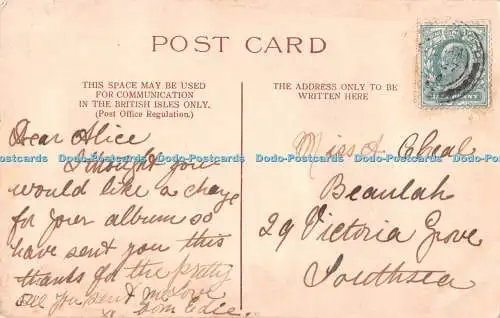 POST CARD
THIS SPACE MAY BE USED
FOR COMMUNICATION
IN THE BRITISH ISLES ONLY.
(Post Office Regulation.)
THE ADDRESS ONLY TO BE
WRITTEN HERE
Dear Alice
I thought you
would like a change
for your album so
have sent you this
thanks for the pretty
one you sent me love
from Edie.
Miss A
Beaulah
29 Victoria Grove
Southsea
Dodo-Postcards Dodo-Postcards Dodo-Postcards Dodo-Postcards Dodo-Postcards Dodo-Postcards